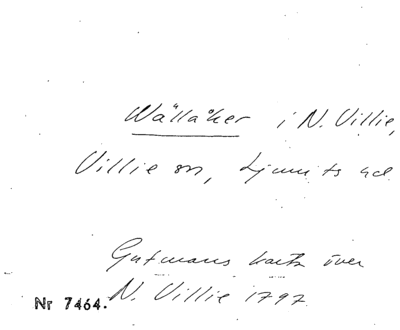 Wållåker i N. Villie,
Villie sn, Ljunits hd
Gutmans karta över
N. Villie 1797
Nr 7464.